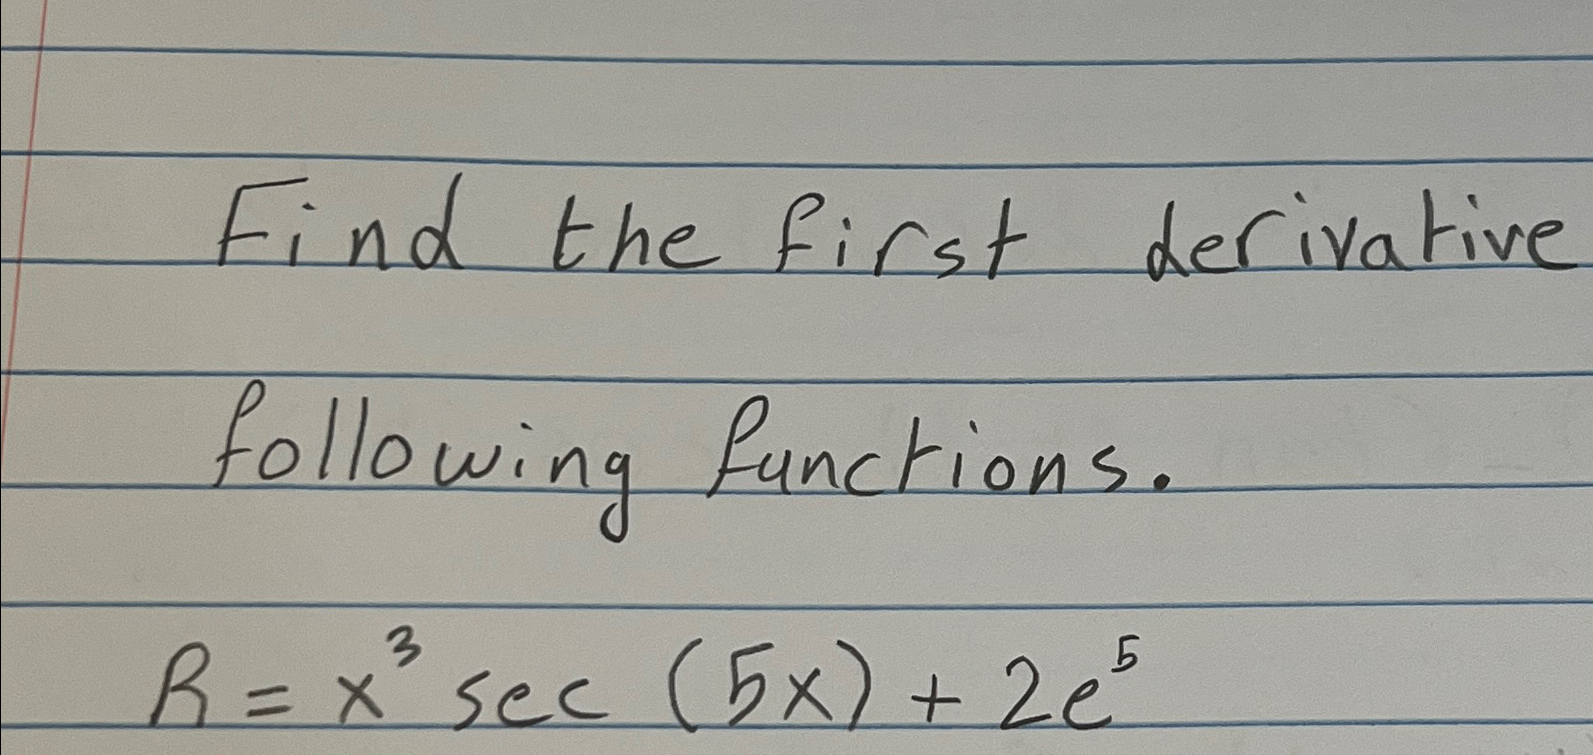 Find the first derivative
following functions.
R = x³ sec (5x) + 2e⁵